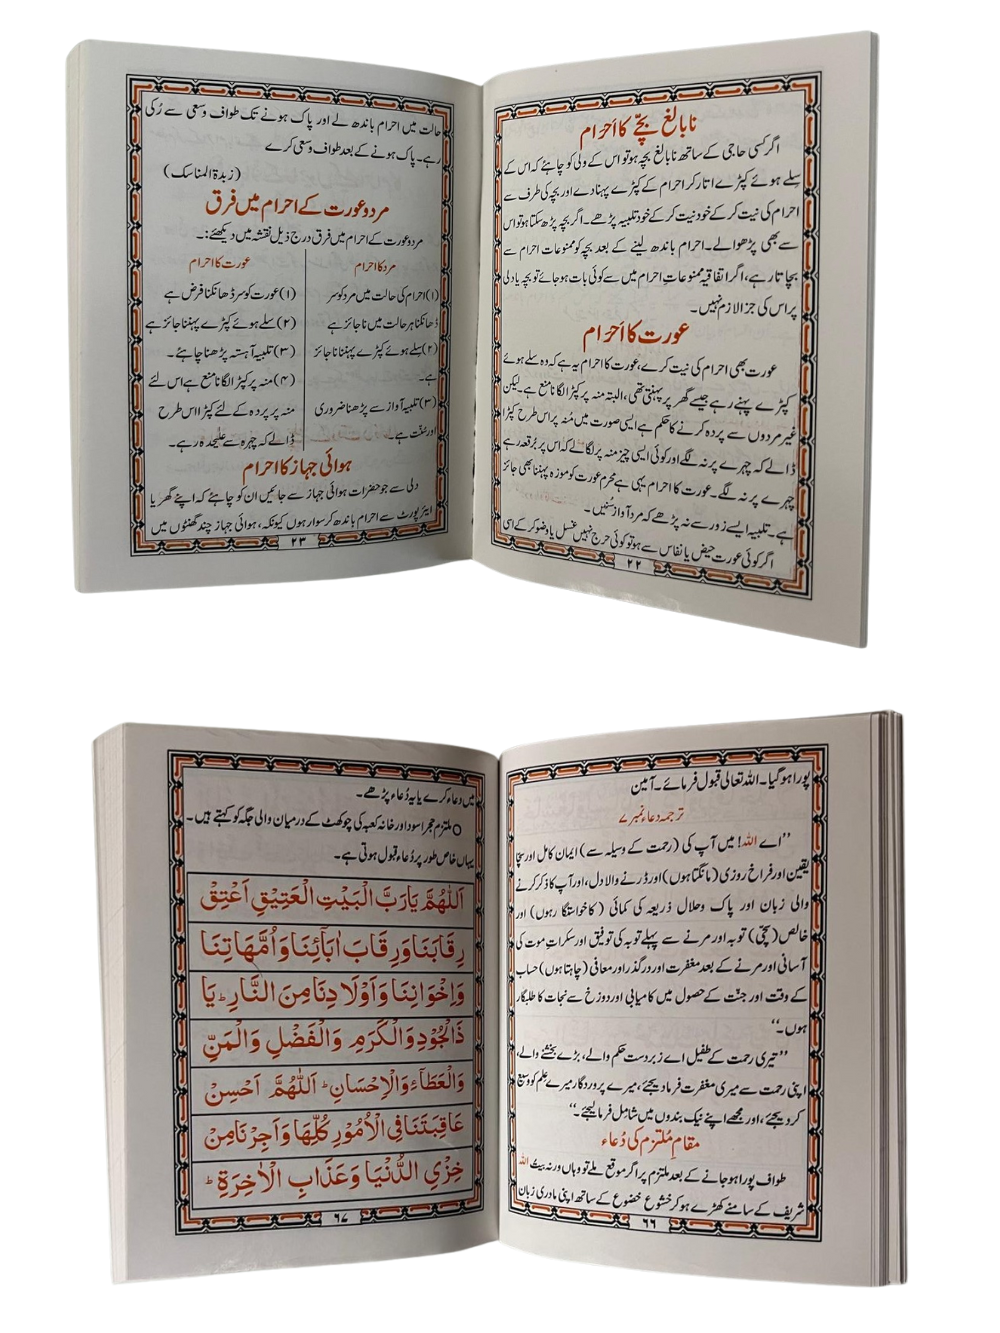 نابالغ بچّے کا احرام
اگر کسی حاجی کے ساتھ نابالغ بچہ ہو تو اس کے ولی کو چاہئے کہ اس کے
سِلے ہوئے کپڑے اتار کر احرام کے کپڑے پہنا دے اور بچہ کی طرف سے
احرام کی نیت کر کے خود نیت کر کے خود تلبیہ پڑھے۔ اگر بچہ پڑھ سکتا ہو تو اس
سے بھی پڑھوالے۔ احرام باندھ لینے کے بعد بچہ کو ممنوعات احرام سے
بچاتا رہے، اگر اتفاقیہ ممنوعاتِ احرام میں سے کوئی بات ہو جائے تو بچہ یا ولی
پر اس کی جزا لازم نہیں۔
عورت کا احرام
عورت بھی احرام کی نیت کرے، عورت کا احرام یہ ہے کہ وہ سلے ہوئے
کپڑے پہنے رہے جیسے گھر پر پہنتی تھی، البتہ منہ پر کپڑا لگانا منع ہے۔ لیکن
غیر مردوں سے پردہ کرنے کا حکم ہے ایسی صورت میں مُنہ پر اس طرح کپڑا
ڈالے کہ چہرے پر نہ لگے اور کوئی ایسی چیز منہ پر لگالے کہ اس پر بُرقعہ رہے
چہرے پر نہ لگے۔ عورت کا احرام یہی ہے محرم عورت کو موزہ پہننا بھی جائز
ہے۔ تلبیہ ایسے زور سے نہ پڑھے کہ مرد آواز سُنیں۔
اگر کوئی عورت حیض یا نفاس سے ہو تو کوئی حرج نہیں غسل یا وضو کر کے اسی
۲۲
حالت میں احرام باندھ لے اور پاک ہونے تک طواف وسعی سے رُکی
رہے۔ پاک ہونے کے بعد طواف وسعی کرے
(زبدۃ المناسک)
مرد و عورت کے احرام میں فرق
مرد و عورت کے احرام میں فرق درج ذیل نقشہ میں دیکھئے:۔
مرد کا احرام
(۱) احرام کی حالت میں مرد کو سر
ڈھانکنا ہر حالت میں ناجائز ہے
(۲) سلے ہوئے کپڑے پہننا ناجائز
ہے۔
(۳) تلبیہ آواز سے پڑھنا ضروری
اور سُنّت ہے۔
عورت کا احرام
(۱) عورت کو سر ڈھانکنا فرض ہے
(۲) سلے ہوئے کپڑے پہننا جائز ہے
(۳) تلبیہ آہستہ پڑھنا چاہئے۔
(۴) منہ پر کپڑا لگانا منع ہے اس لئے
منہ پر پردہ کے لئے کپڑا اس طرح
ڈالے کہ چہرہ سے علیٰحدہ رہے۔
ہوائی جہاز کا احرام
دلی سے جو حضرات ہوائی جہاز سے جائیں ان کو چاہئے کہ اپنے گھر یا
ایئر پورٹ سے احرام باندھ کر سوار ہوں کیونکہ، ہوائی جہاز چند گھنٹوں میں
۲۳
پورا ہو گیا۔ اللہ تعالیٰ قبول فرمائے۔ آمین
ترجمہ دعاء نمبر ۷
”اے اللہ! میں آپ کی (رحمت کے وسیلہ سے) ایمان کامل اور سچا
یقین اور فراخ روزی (مانگتا ہوں) اور ڈرنے والا دل، اور آپ کا ذکر کرنے
والی زبان اور پاک وحلال ذریعہ کی کمائی (کا خواستگار ہوں) اور
خالص (سچّی) توبہ اور مرنے سے پہلے توبہ کی توفیق اور سکراتِ موت کی
آسانی اور مرنے کے بعد مغفرت اور درگذر اور معافی (چاہتا ہوں) حساب
کے وقت اور جنّت کے حصول میں کامیابی اور دوزخ سے نجات کا طلبگار
ہوں۔“
”تیری رحمت کے طفیل اے زبردست حکم والے، بڑے بخشنے والے،
اپنی رحمت سے میری مغفرت فرما دیجئے، میرے پروردگار میرے علم کو وسیع
کر دیجئے، اور مجھے اپنے نیک بندوں میں شامل فرما لیجئے۔“
مقامِ مُلتزم کی دُعاء
طواف پورا ہو جانے کے بعد ملتزم پر اگر موقع ملے تو وہاں ورنہ بیتُ اللہ
شریف کے سامنے کھڑے ہو کر خشوع خضوع کے ساتھ اپنی مادری زبان
۶۶
میں دعاء کرے یا یہ دُعاء پڑھے۔
○ ملتزم حجر اسود اور خانہ کعبہ کی چوکھٹ کے درمیان والی جگہ کو کہتے ہیں۔
یہاں خاص طور پر دُعاء قبول ہوتی ہے۔
اَللّٰهُمَّ يَارَبَّ الْبَيْتِ الْعَتِيْقِ اَعْتِقْ
رِقَابَنَا وَرِقَابَ اٰبَآئِنَا وَاُمَّهَاتِنَا
وَاِخْوَانِنَا وَاَوْلَادِنَا مِنَ النَّارِ ؕ يَا
ذَا الْجُوْدِ وَالْكَرَمِ وَالْفَضْلِ وَالْمَنِّ
وَالْعَطَآءِ وَالْاِحْسَانِ ؕ اَللّٰهُمَّ اَحْسِنْ
عَاقِبَتَنَا فِى الْاُمُوْرِ كُلِّهَا وَاَجِرْنَا مِنْ
خِزْىِ الدُّنْيَا وَعَذَابِ الْاٰخِرَةِ ؕ
۶۷